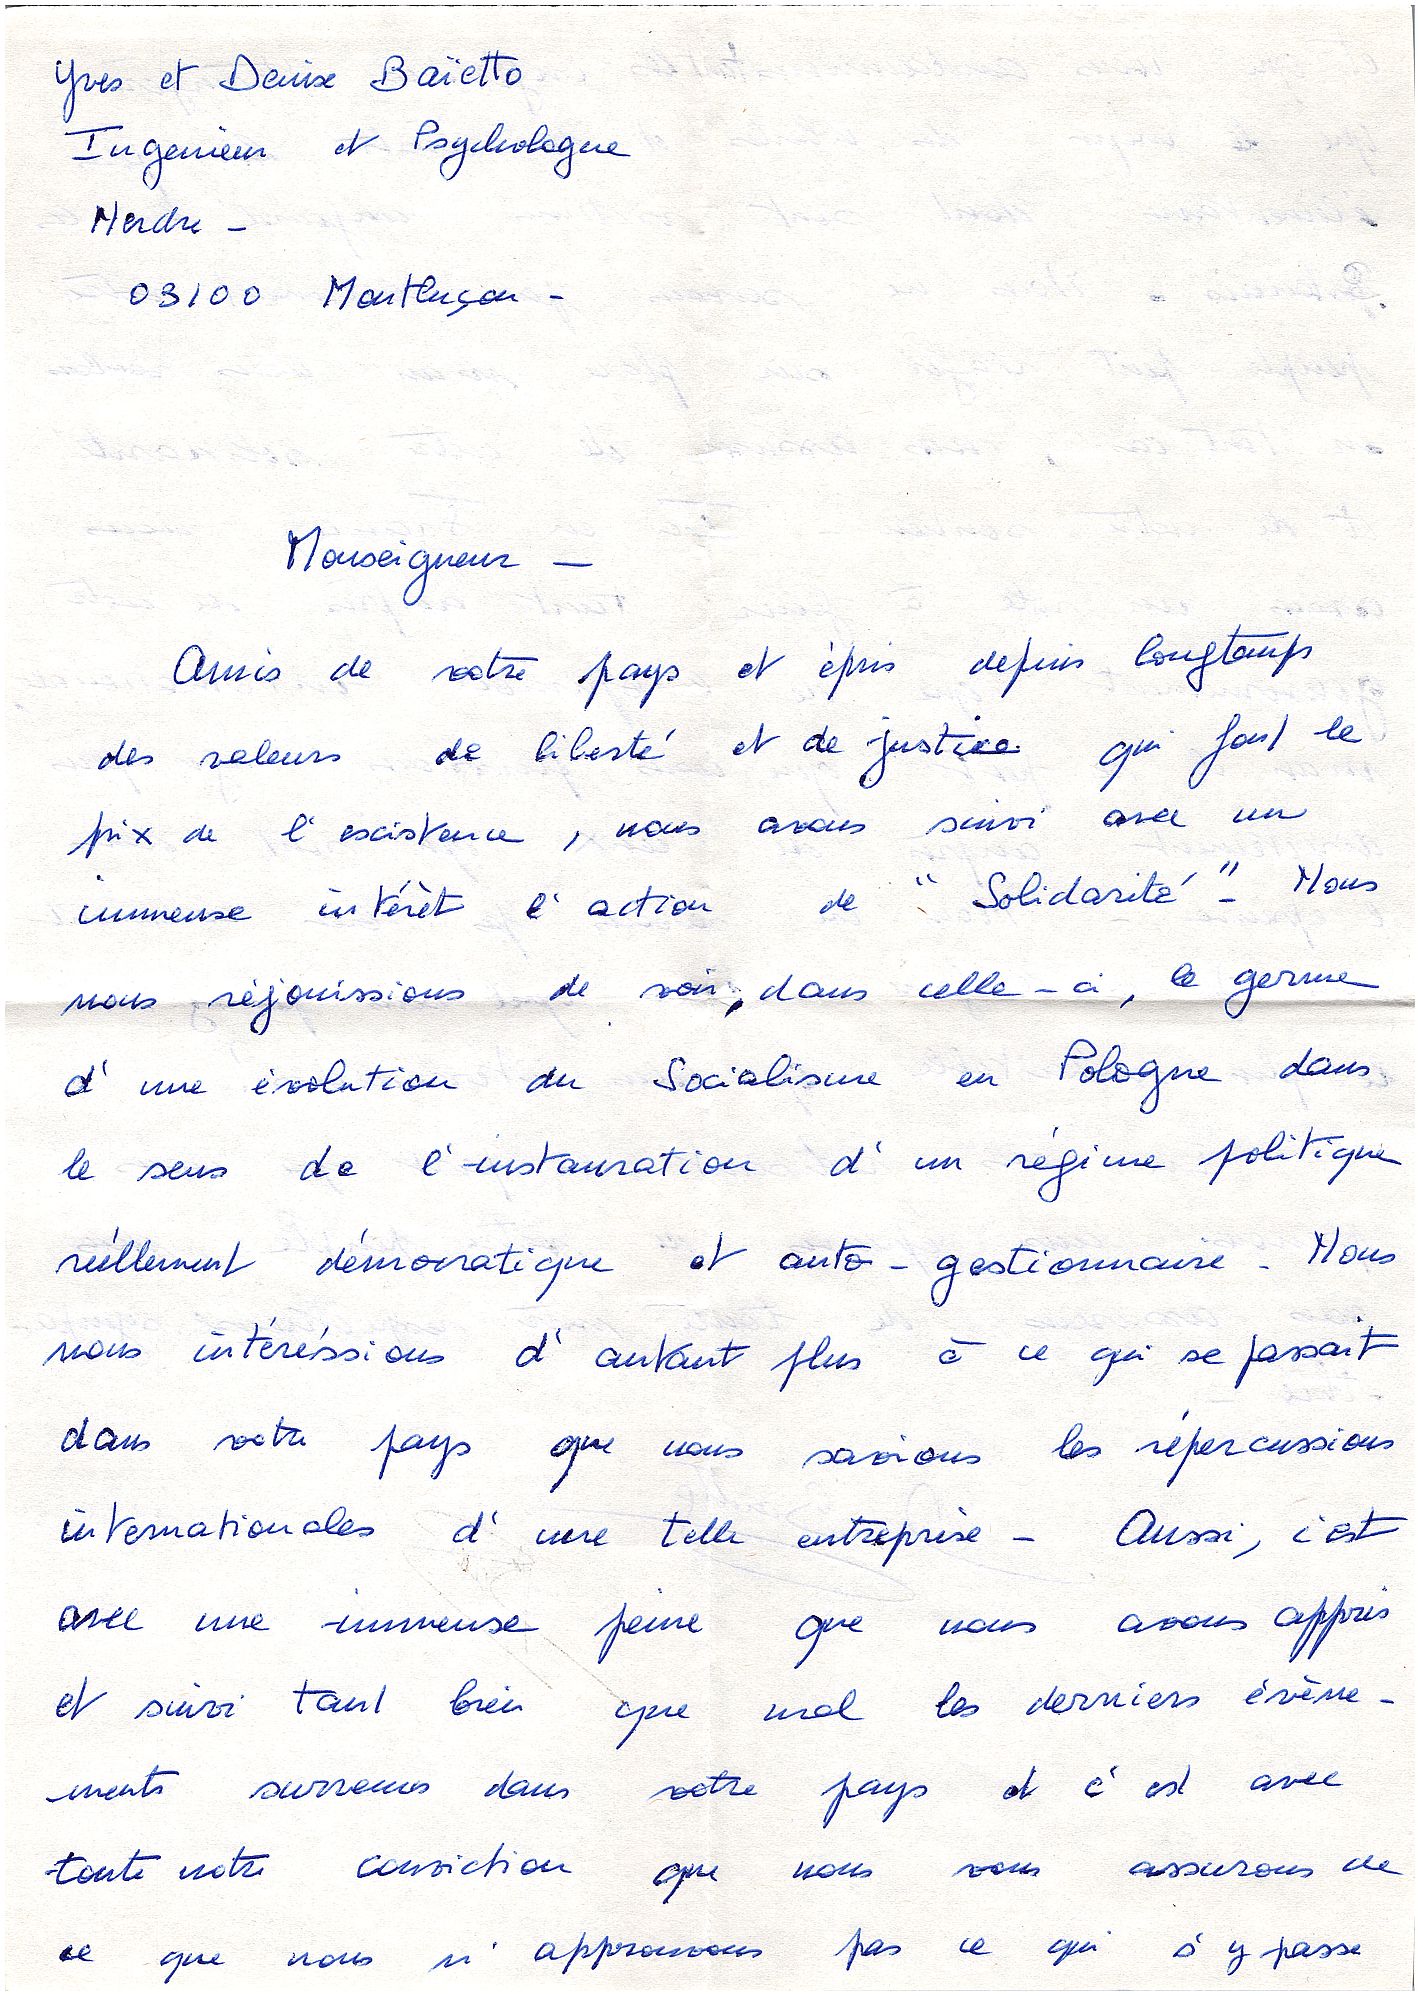 Yves et Denise Baïetto
Ingenieur et Psychologue
Nerdre -
03100 Montluçon -
Monseigneur -
Amis de votre pays et épris depuis longtemps
des valeurs de liberté et de justice qui font le
prix de l'existence, nous avons suivi avec un
immense intérêt l'action de "Solidarité" - Nous
nous réjouissions de voir, dans celle-ci, le germe
d'une évolution du Socialisme en Pologne dans
le sens de l'instauration d'un régime politique
réellement démocratique et auto-gestionnaire - Nous
nous intéréssions d'autant plus à ce qui se passait
dans votre pays que nous savions les répercussions
internationales d'une telle entreprise - Aussi, c'est
avec une immense peine que nous avons appris
et suivi tant bien que mal les derniers évène-
ments survenus dans votre pays et c'est avec
toute notre conviction que nous vous assurons de
ce que nous n'approuvons pas ce qui s'y passe